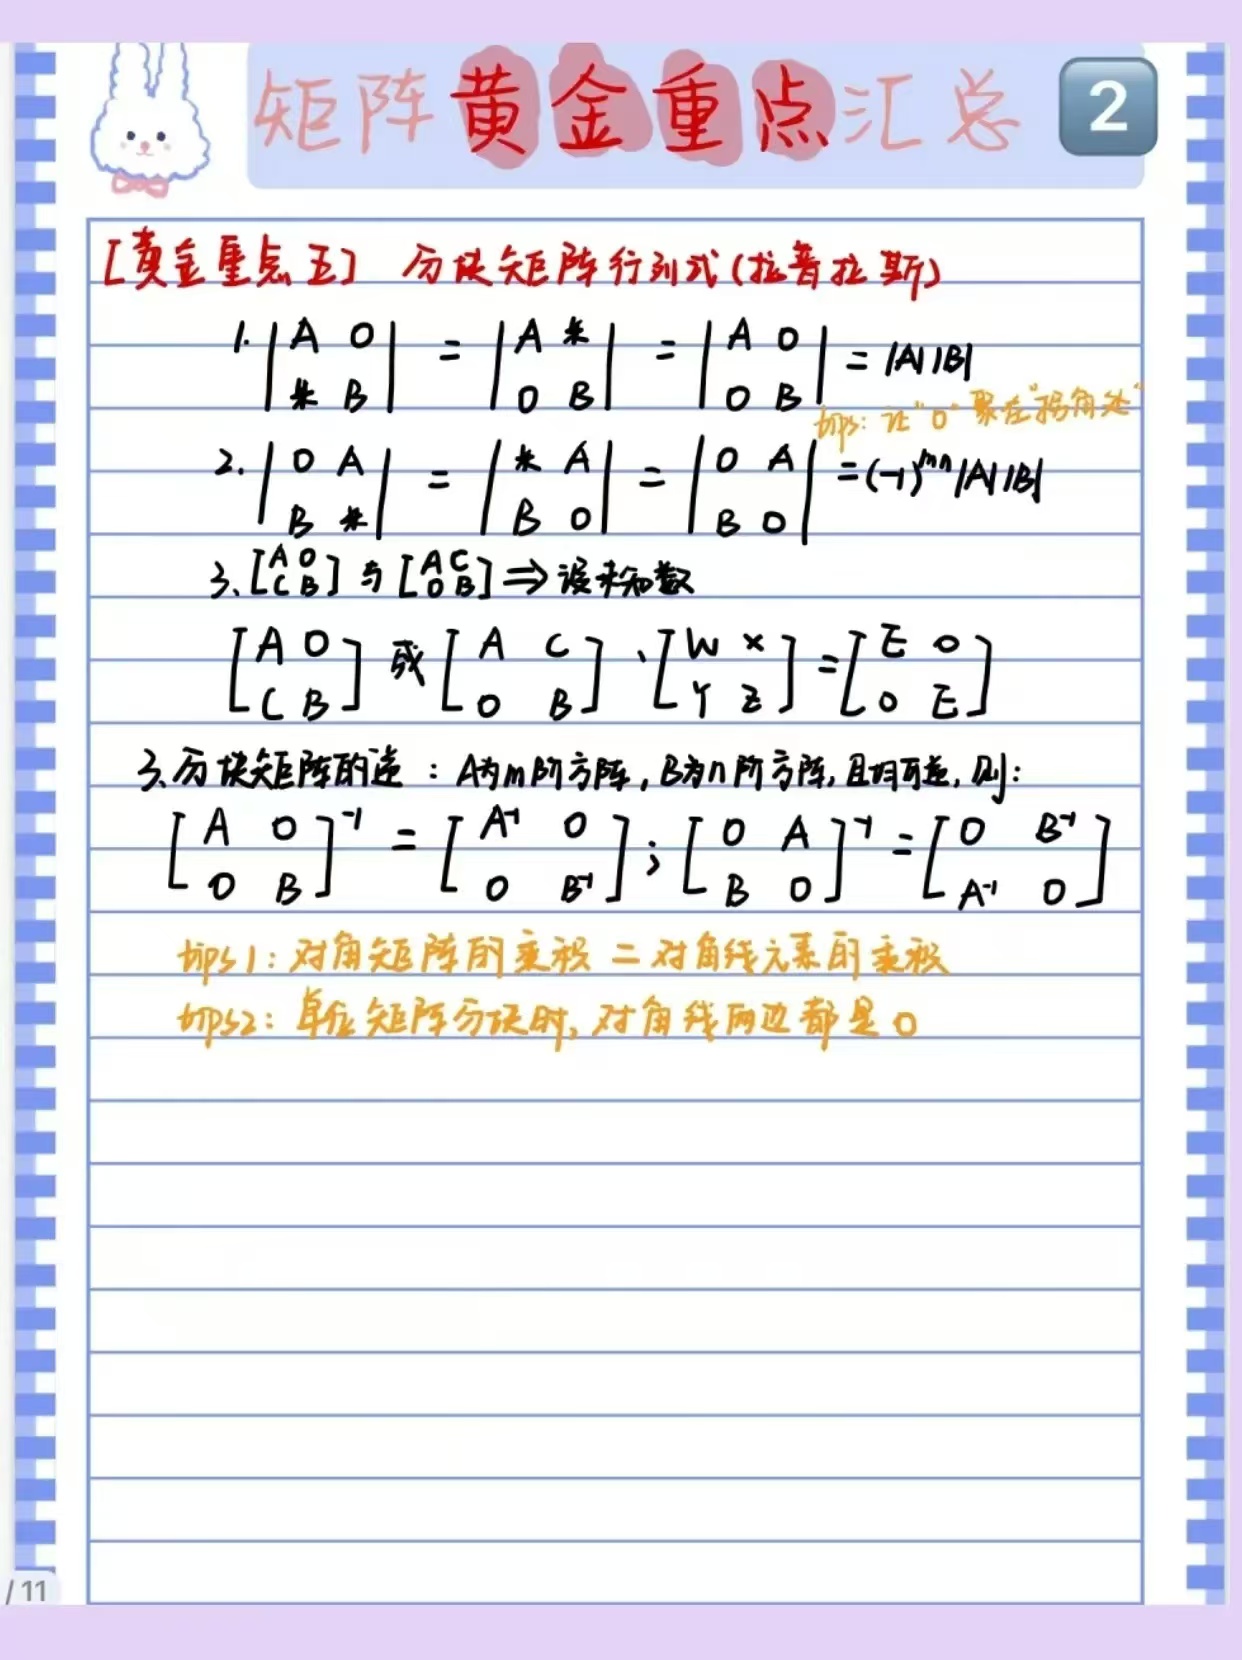 矩阵黄金重点汇总 2
[黄金重点五] 分块矩阵行列式(拉普拉斯)
1. |A 0; * B| = |A *; 0 B| = |A 0; 0 B| = |A||B|
tips: 让"0"聚在"拐角处"
2. |0 A; B *| = |* A; B 0| = |0 A; B 0| = (-1)^mn |A||B|
3. [A 0; C B] 与 [A C; 0 B] ⇒ 设未知数
[A 0; C B] 或 [A C; 0 B] · [W X; Y Z] = [E 0; 0 E]
3. 分块矩阵的逆：A为m阶方阵, B为n阶方阵, 且均可逆, 则:
[A 0; 0 B]^-1 = [A^-1 0; 0 B^-1] ; [0 A; B 0]^-1 = [0 B^-1; A^-1 0]
tips1: 对角矩阵的乘积 = 对角线元素的乘积
tips2: 单位矩阵分块时, 对角线两边都是0
/11